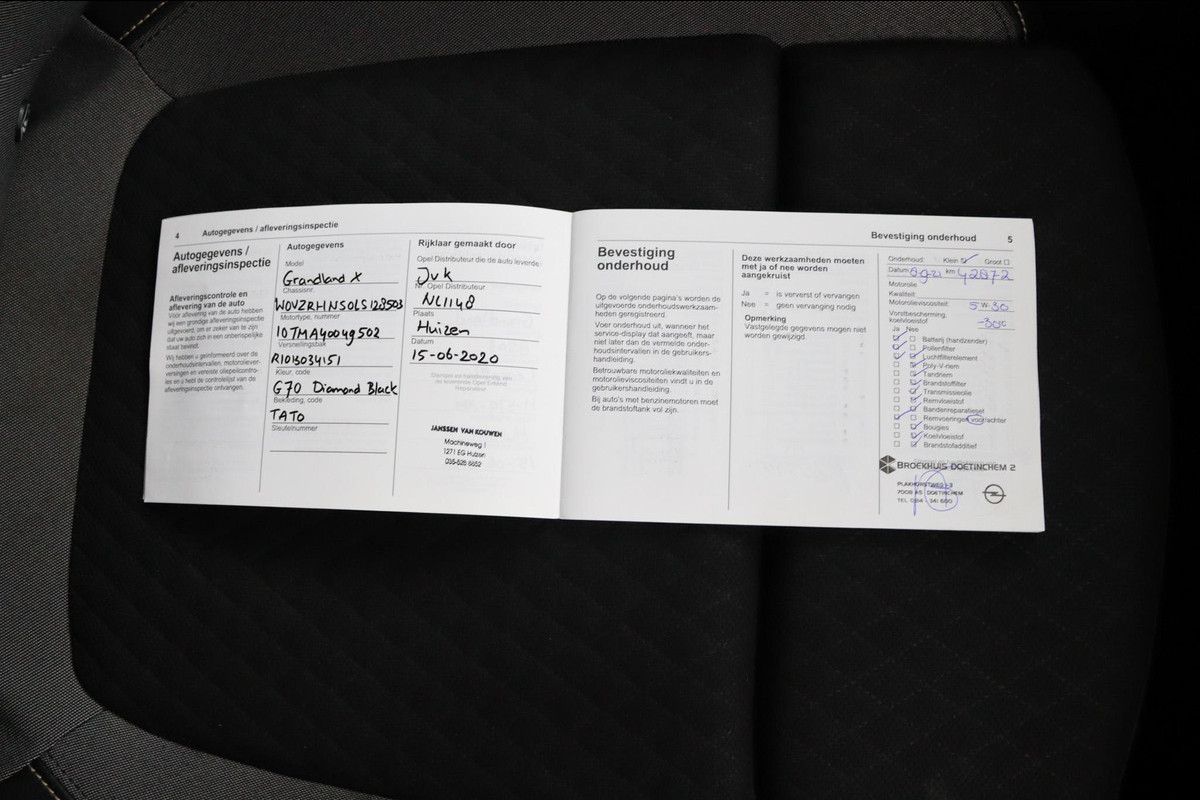 4 Autogegevens / afleveringsinspectie
Autogegevens /
afleveringsinspectie
Afleveringscontrole en
aflevering van de auto
Vóór aflevering van de auto hebben
wij een grondige afleveringsinspectie
uitgevoerd, om er zeker van te zijn
dat uw auto zich in een onberispelijke
staat bevindt.
Wij hebben u geïnformeerd over de
onderhoudsintervallen, motoroliever-
versingen en vereiste oliepeilcontro-
les en u hebt de controlelijst van de
afleveringsinspectie ontvangen.
Autogegevens
Model
Grandland X
Chassisnr.
W0VZRHNS0LS128503
Motortype, nummer
10TMAY0049502
Versnellingsbak
R1013034151
Kleur, code
G70 Diamond Black
Bekleding, code
TAT0
Sleutelnummer
Rijklaar gemaakt door
Opel Distributeur die de auto leverde:
JvK
Nr. Opel Distributeur
NL1148
Plaats
Huizen
Datum
15-06-2020
JANSSEN VAN KOUWEN
Machineweg 1
1271 EG Huizen
Bevestiging onderhoud 5
Bevestiging
onderhoud
Op de volgende pagina's worden de
uitgevoerde onderhoudswerkzaam-
heden geregistreerd.
Voer onderhoud uit, wanneer het
service-display dat aangeeft, maar
niet later dan de vermelde onder-
houdsintervallen in de gebruikers-
handleiding.
Betrouwbare motoroliekwaliteiten en
motorolieviscositeiten vindt u in de
gebruikershandleiding.
Bij auto's met benzinemotoren moet
de brandstoftank vol zijn.
Deze werkzaamheden moeten
met ja of nee worden
aangekruist
Ja = is ververst of vervangen
Nee = geen vervanging nodig
Opmerking
Vastgelegde gegevens mogen niet
worden gewijzigd.
Onderhoud: Klein Groot
Datum km 42872
Motorolie
Kwaliteit:
Motorolieviscositeit: 5W-30
Vorstbescherming,
koelvloeistof -30°C
Ja Nee
Batterij (handzender)
Pollenfilter
Luchtfilterelement
Poly-V-riem
Tandriem
Brandstoffilter
Transmissieolie
Remvloeistof
Bandenreparatieset
Remvoeringen voor/achter
Bougies
Koelvloeistof
Brandstofadditief
BROEKHUIS DOETINCHEM 2
PLAKHORSTWEG
7005 AS DOETINCHEM